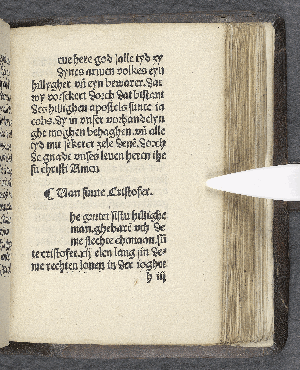 cue here god salle tyd zy
dynes armen volkes eyn
hillygher vñ eyn bewarer. dat
wy vorsekert dorch dat bistant
des hillighen apostels sunte ia
cobs. dy in vnser vorhandelyn
ghe moghen behaghen. vñ alle
tyd mit sekerer zele dene. dorch
de gnade vnses leuen heren ihe
su christi Amen
¶ Uan sunte Cristoffer.
he gontet sistu hillighe
man. ghebarẽ vth de
me slechte chanaan. sũ
te cristoffer. xij elen lang jn de
me rechten louen in der ioghet
h iij